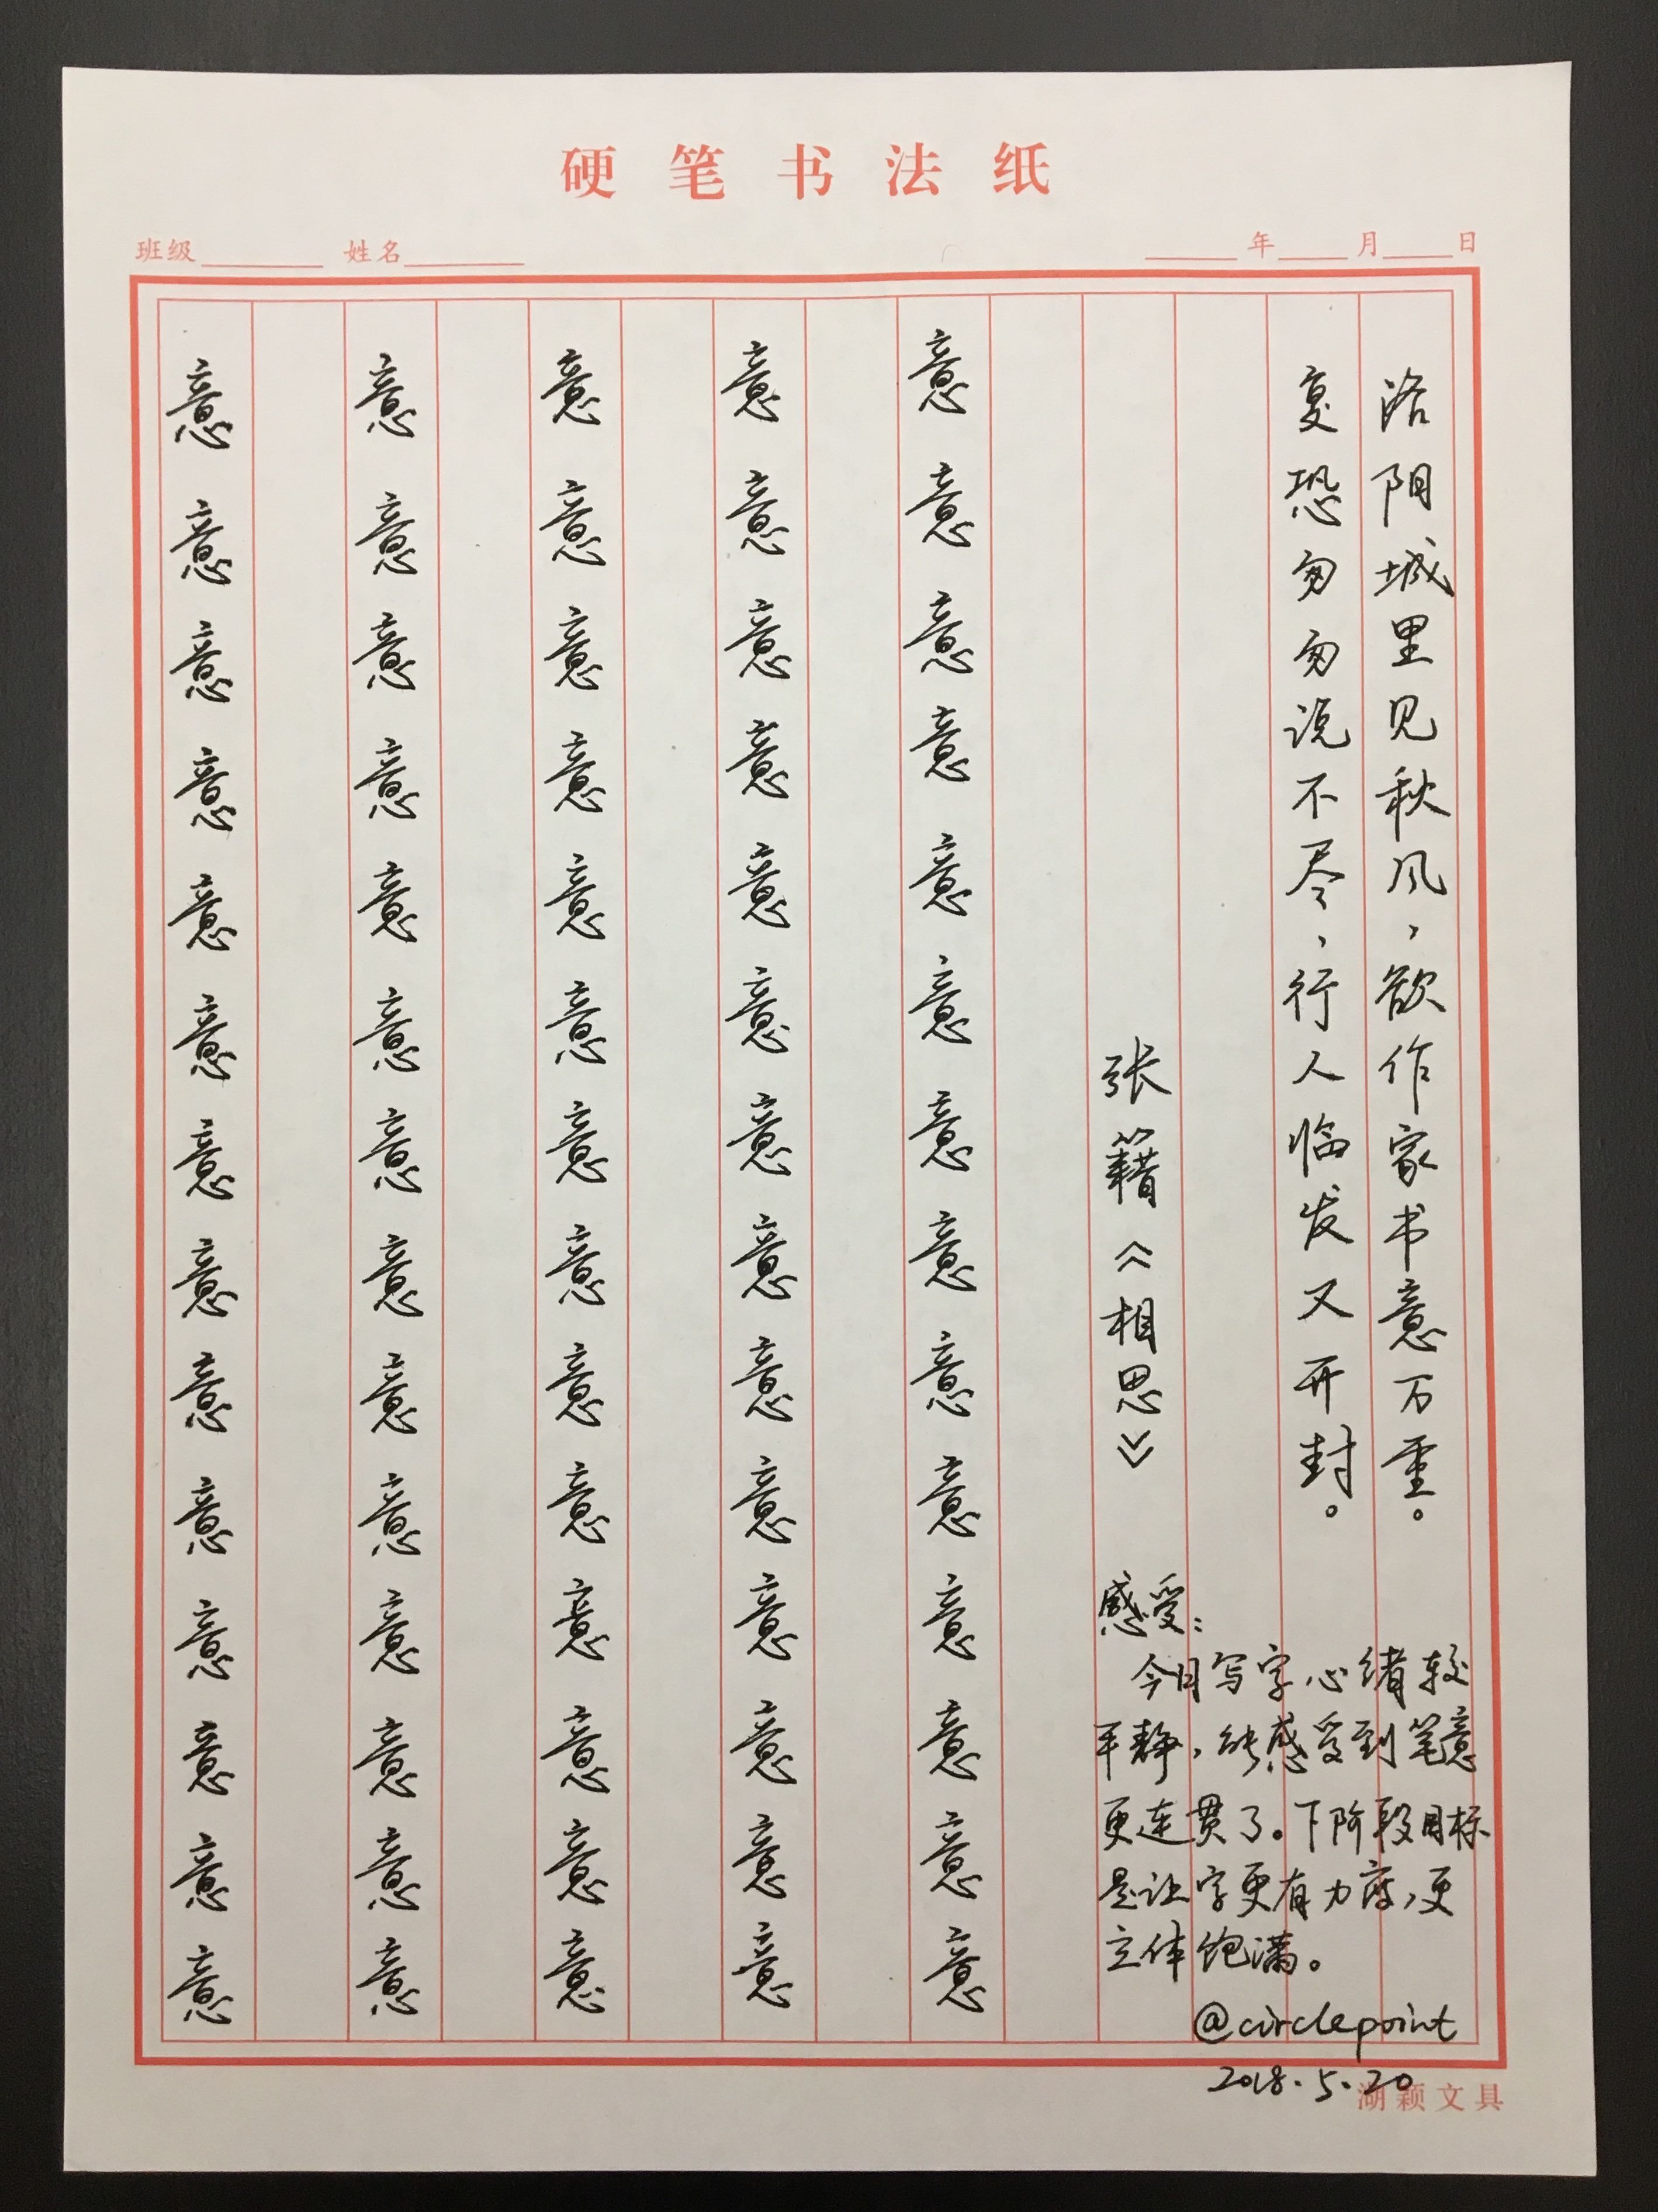 硬笔书法纸
班级 姓名 年 月 日
洛阳城里见秋风，欲作家书意万重。
复恐匆匆说不尽，行人临发又开封。
张籍《相思》
感受：
今日写字心绪较
平静，能感受到笔意
更连贯了。下阶段目标
是让字更有力度，更
立体饱满。
@circlepoint
2018.5.20
意意意意意意意意意意意意意意
意意意意意意意意意意意意意意
意意意意意意意意意意意意意意
意意意意意意意意意意意意意意
意意意意意意意意意意意意意意
湖颖文具